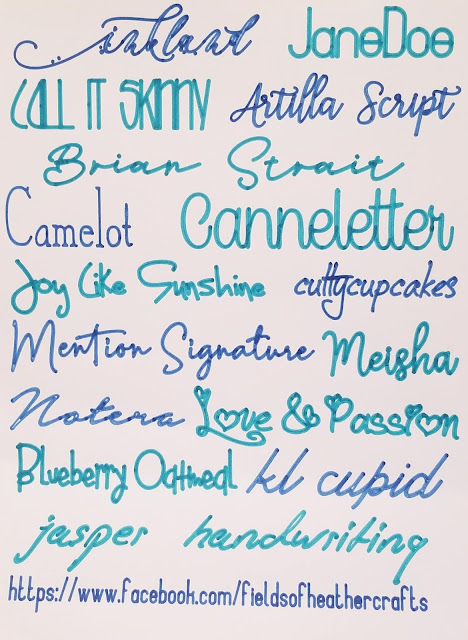 inkland JaneDoe
CALL IT SKINNY Artilla Script
Brian Strait
Camelot Canneletter
Joy Like Sunshine cuttycupcakes
Mention Signature Meisha
Notera Love & Passion
Blueberry Oatmeal kl cupid
jasper handwriting
https://www.facebook.com/fieldsofheathercrafts